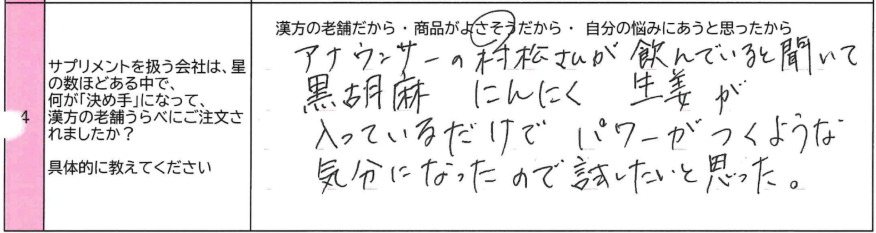 4
サプリメントを扱う会社は、星
の数ほどある中で、
何が「決め手」になって、
漢方の老舗うらべにご注文さ
れましたか?
具体的に教えてください
漢方の老舗だから・商品がよさそうだから・ 自分の悩みにあうと思ったから
アナウンサーの村松さんが 飲んでいると聞いて
黒胡麻 にんにく 生姜が
入っているだけで パワーがつくような
気分になったので試したいと思った。